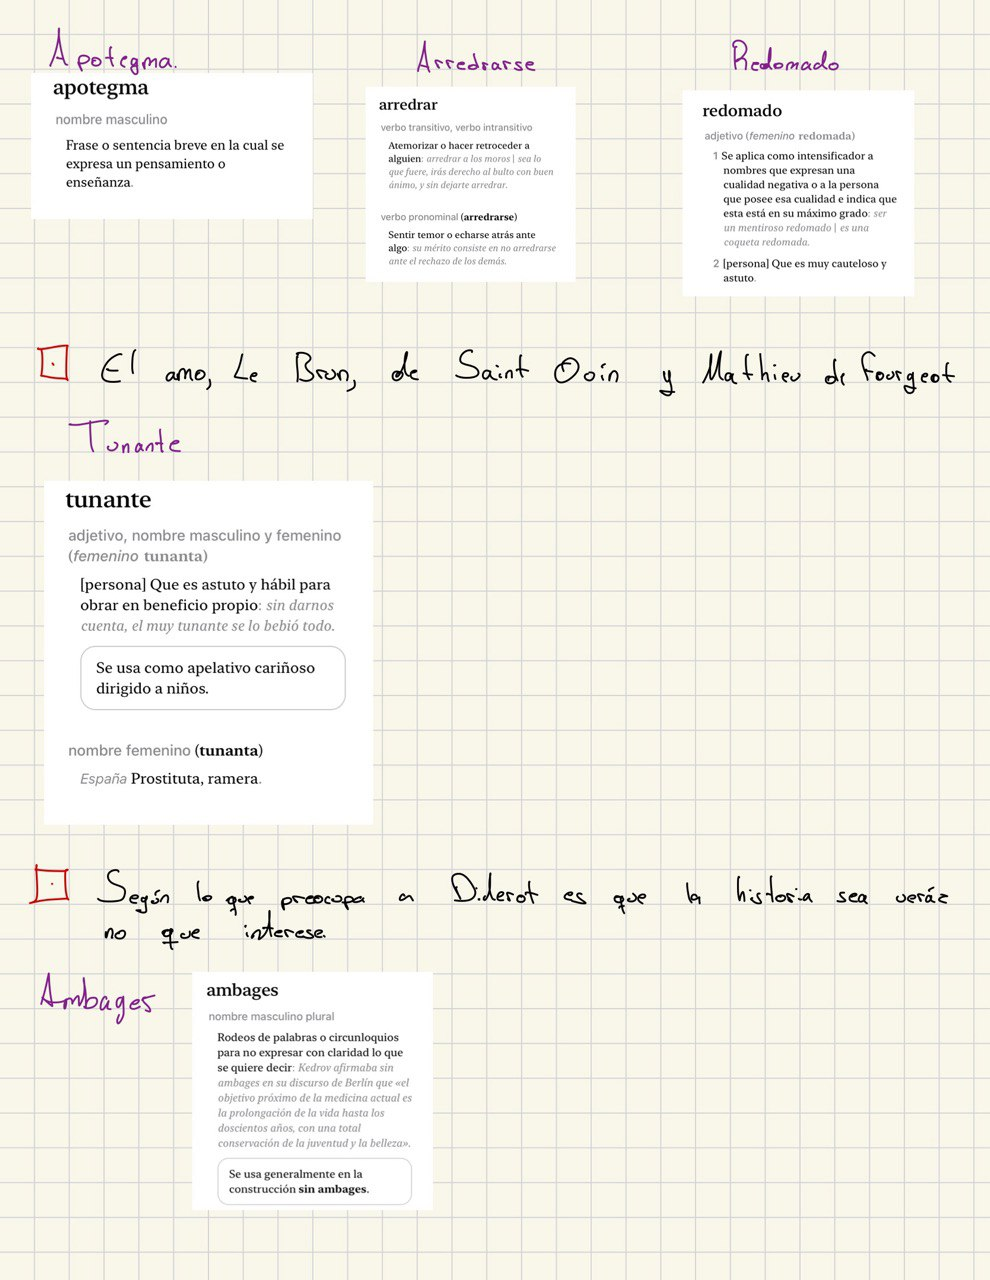 Apotegma.
apotegma
nombre masculino
Frase o sentencia breve en la cual se
expresa un pensamiento o
enseñanza.
Arredrarse
arredrar
verbo transitivo, verbo intransitivo
Atemorizar o hacer retroceder a
alguien: arredrar a los moros | sea lo
que fuere, irás derecho al bulto con buen
ánimo, y sin dejarte arredrar.
verbo pronominal (arredrarse)
Sentir temor o echarse atrás ante
algo: su mérito consiste en no arredrarse
ante el rechazo de los demás.
Redomado
redomado
adjetivo (femenino redomada)
1 Se aplica como intensificador a
nombres que expresan una
cualidad negativa o a la persona
que posee esa cualidad e indica que
esta está en su máximo grado: ser
un mentiroso redomado | es una
coqueta redomada.
2 [persona] Que es muy cauteloso y
astuto.
El amo, Le Brun, de Saint Ouín y Mathieu de Fourgeot
Tunante
tunante
adjetivo, nombre masculino y femenino
(femenino tunanta)
[persona] Que es astuto y hábil para
obrar en beneficio propio: sin darnos
cuenta, el muy tunante se lo bebió todo.
Se usa como apelativo cariñoso
dirigido a niños.
nombre femenino (tunanta)
España Prostituta, ramera.
Según lo que preocupa a Diderot es que la historia sea veráz
no que interese.
Ambages
ambages
nombre masculino plural
Rodeos de palabras o circunloquios
para no expresar con claridad lo que
se quiere decir: Kedrov afirmaba sin
ambages en su discurso de Berlín que «el
objetivo próximo de la medicina actual es
la prolongación de la vida hasta los
doscientos años, con una total
conservación de la juventud y la belleza».
Se usa generalmente en la
construcción sin ambages.